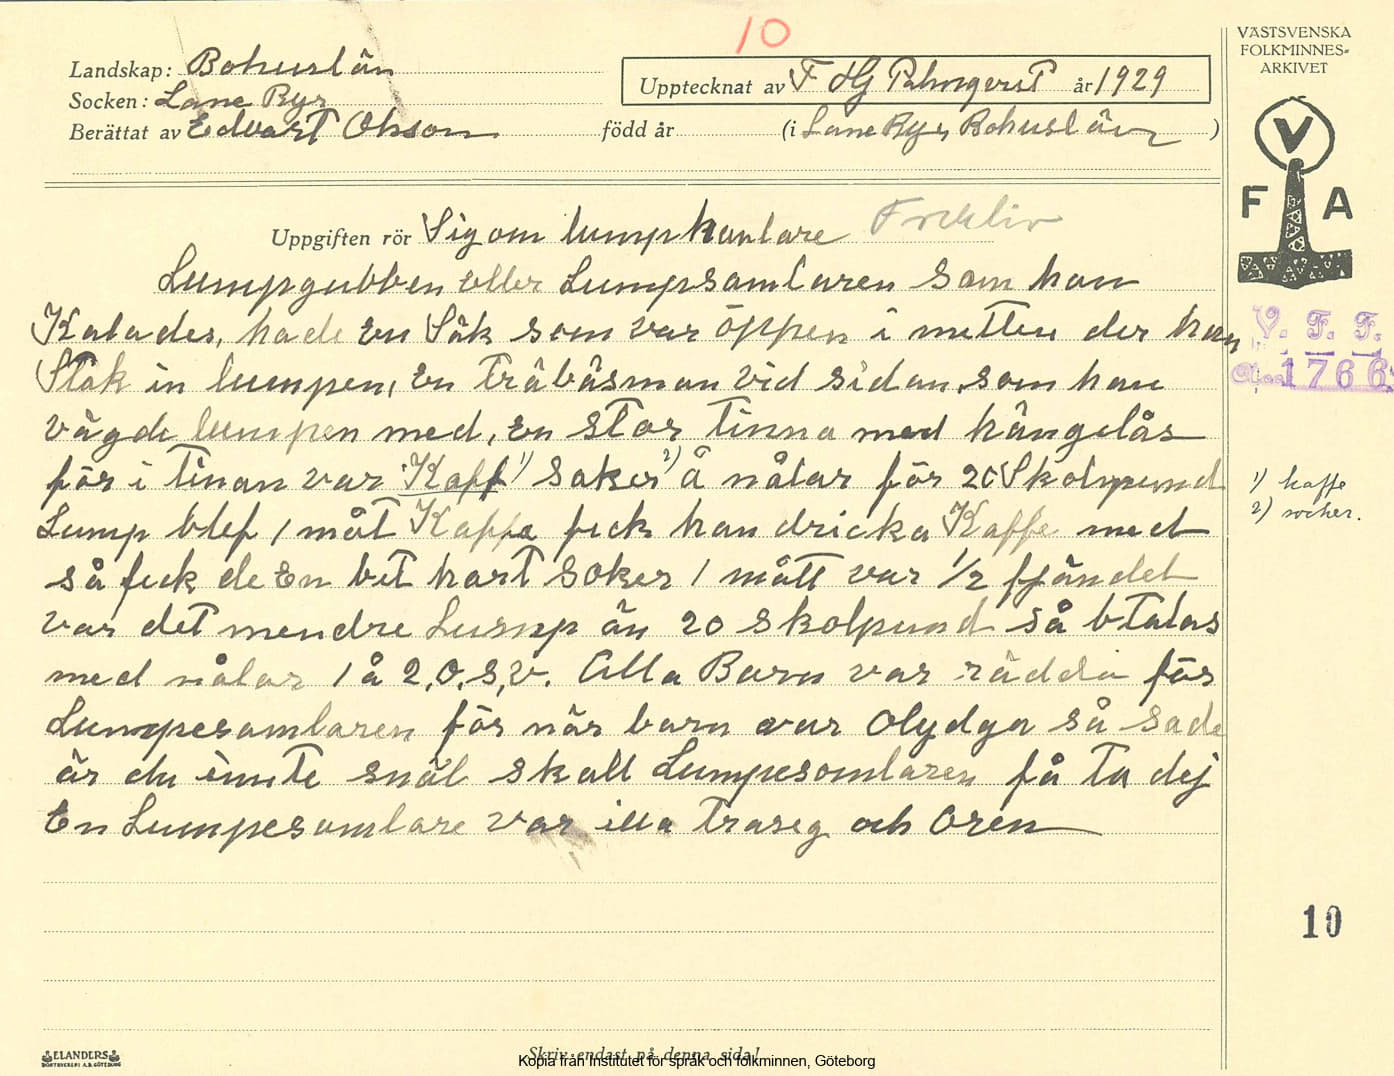 10
VÄSTSVENSKA
FOLKMINNES-
ARKIVET
Landskap: Bohuslän
Upptecknat av F Hj Palmqvist år 1929
Socken: Lane Ryr
Berättat av Edvart Olsson född år (i Lane Ryr Bohuslän)
V
F A
Uppgiften rör Sig om lumphanlare
Lumpgubben eller Lumpsamlaren som han
Kalades, hade En Säk som var öppen i mitten der han
V. F. F.
Stak in lumpen, En träbäsman vid sidan, som han
1766
vägde lumpen med, En stor tinna med hängelås
för i tinan var Kaff 1) Soker 2) å nålar för 20 Skolpund
1) kaffe
Lump blef 1 måt Kaffe fick han dricka Kaffe med
2) socker.
så fick de En bit hart Soker 1 mått var 1/2 fjändel
var det mendre Lump än 20 skolpund så btalas
med nålar 1 å 2, O, S, V. Alla Barn var rädda för
Lumpesamlaren för när barn var Olydga så sade
är du innte snäl skall Lumpesamlaren få ta dej
En Lumpesamlare var illa trasig och Oren
10
ELANDERS
BOKTRYCKERI A.B. GÖTEBORG
Skriv endast på denna sida!
Kopia från Institutet för språk och folkminnen, Göteborg